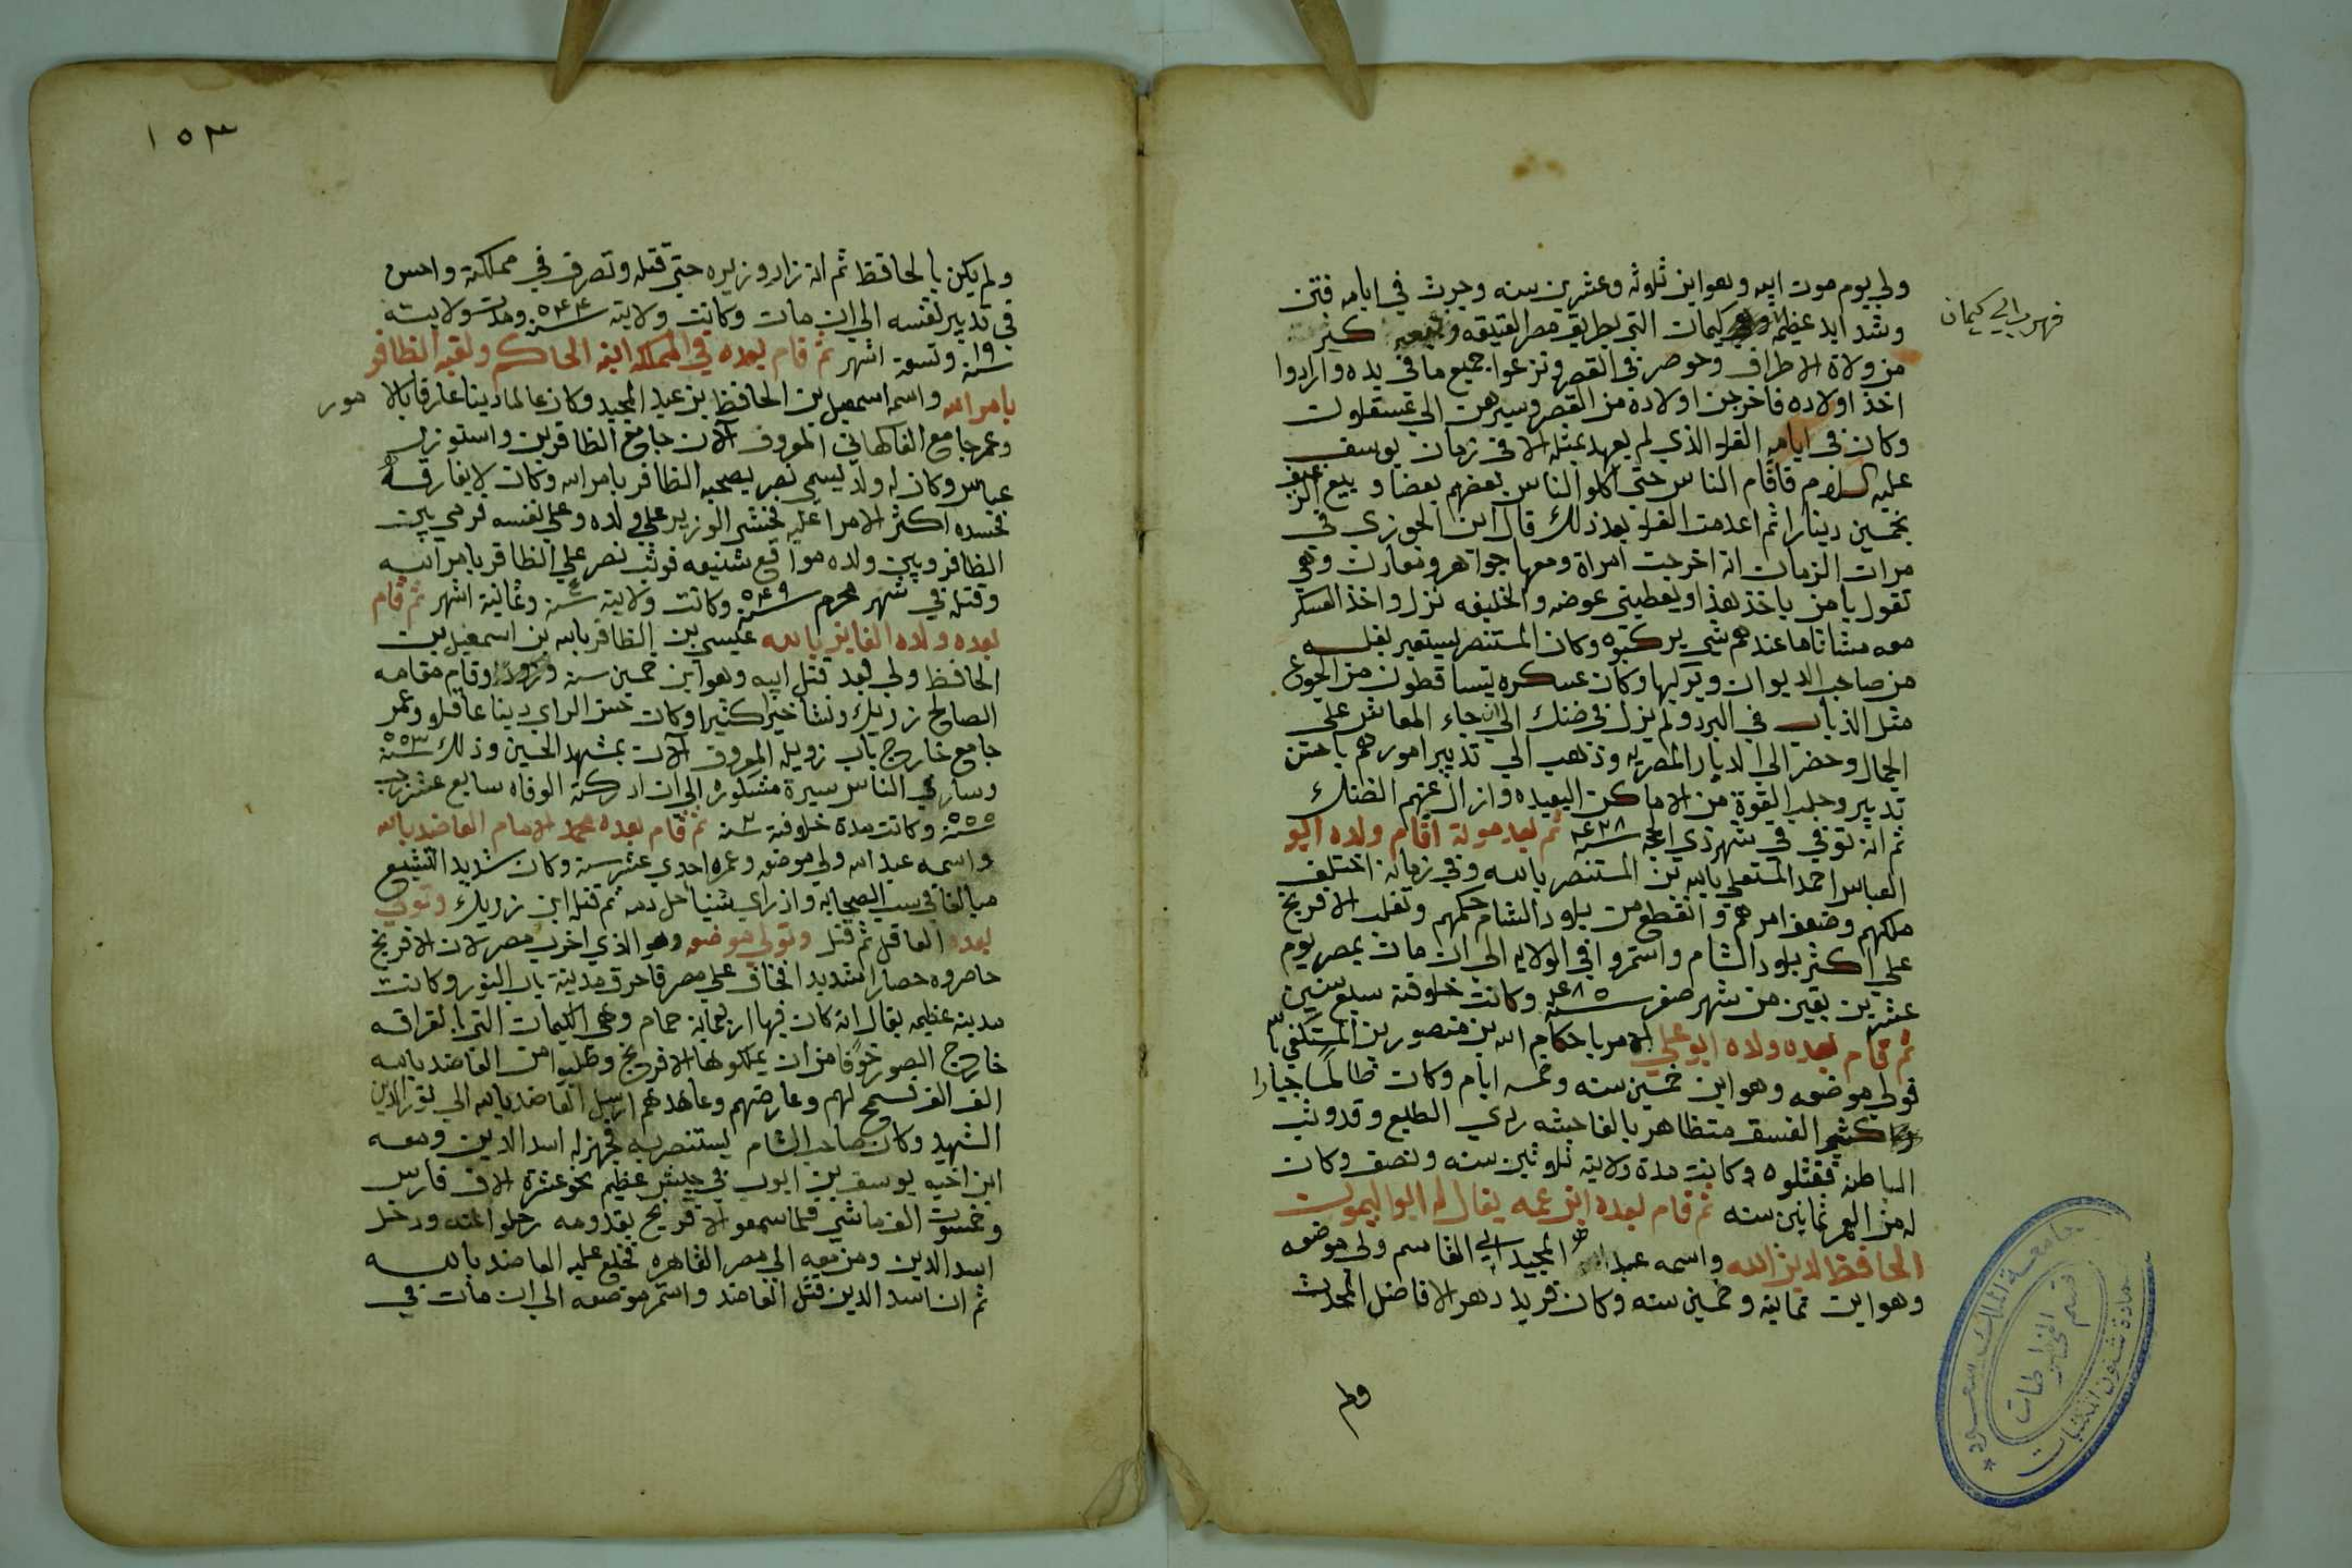 ولي يوم موت ابيه وهو ابن ثلاثه وعشرين سنه وجرت في ايامه فتن
فهرب الي كيمان
وشدايد عظيمه كيمات التي بطريق مصر العتيقه كثير
من ولاة الاطراف وحوصر في القصر ونزعوا جميع ما في يده وارادوا
اخذ اولاده فاخرجن اولاده من القصر وسيرهن الي عسقلات
وكان في ايامه الغلا الذي لم يعهد بمثله الا في زمان يوسف
عليه السلام فاقام الناس حتي اكلوا الناس بعضهم بعضا وبيع
بخمسين دينارا ثم اعدمت الغلا بعد ذلك قال ابن الجوزي في
مرات الزمان انه اخرجت امراة ومعها جواهر ومعادن وهي
تقول يا من ياخذ هذا ويعطيني عوضه والخليفه نزل واخذ العسكر
معه مشاتا ما عندهم شي يركبوه وكان المستنصر يستعير بغله
من صاحب الديوان ويركبها وكان عسكره يتساقطون من الجوع
مثل الذباب في البرد ولم يزل في ضنك الي ان جاء المعاش علي
الجمال وحضر الي الديار المصريه وذهب الي تدبير امورهم باحسن
تدبير وجلب القوة من الاماكن البعيده وازال عنهم الضنك
ثم انه توفي في شهر ذي الحجه سنة ثم بعد موته اقام ولده ابو
العباس احمد المستعلي بالله بن المستنصر بالله وفي زمانه اختلف
ملكهم وضعف امرهم وانقطع من بلاد الشام حكمهم وتغلب الافرنج
علي اكثر بلاد الشام واستمروا في الولايه الي ان مات بمصر يوم
عشرين بقين من شهر صفر سنة ٤٨٥ وكانت خلافته سبع سنين
ثم قام بعده ولده ابو علي الامر باحكام الله بن منصور بن المستكفي
فولي موضعه وهو ابن خمسين سنه وخمسه ايام وكان ظالما جبارا
كثير الفسق متظاهر بالفاحشه ردي الطبع وقد وثب
الباطنه فقتلوه وكانت مدة ولايته ثلاثين سنه ونصف وكان
له من العمر ثمانين سنه ثم قام بعده ابن عمه يقال له ابو الميمون
الحافظ لدين الله واسمه عبد المجيد ابي القاسم ولي موضعه
وهو ابن ثمانيه وخمسين سنه وكان فريد دهره لافاضل المحدث
ولم
١٥٣
ولم يكن بالحافظ ثم انه زاد وزيره حتي قتله وتصرف في مملكته واحسن
في تدبير نفسه الي ان مات وكانت ولايته سنة ٥٤٤ ومدت ولايته
١٩ سنة وتسعة اشهر ثم قام بعده في المملكه ابنه الحاكم ولقبه الظافر
بامر الله واسمه اسمعيل بن الحافظ بن عبد المجيد وكان عالما دينا عارفا بالامور
وعمر جامع الفاكهاني المعروف الان جامع الظافرين واستوزر
عباس وكان له ولد يسمي نصر يصحبه الظافر بامر الله وكان لا يفارقه
فحسده اكثر الامرا عليه فخشي الوزير علي ولده وعلي نفسه فرمي بين
الظافر وبين ولده مواقع شنيعه فوثب نصر علي الظافر بامر الله
وقتله في شهر محرم سنة ٥٤٩ وكانت ولايته سنة وثمانية اشهر ثم قام
بعده ولده الفايز بالله عيسي بن الظافر بالله بن اسمعيل بن
الحافظ ولي بعد قتل ابيه وهو ابن خمسين سنه وقام مقامه
الصالح زريك ونشا خيرا كثيرا وكان حسن الراي دينا عاقلا وعمر
جامع خارج باب زويله المعروف الان بمشهد الحسين وذلك سنة ٥٥٣
وسار في الناس سيرة مشكوره الي ان ادركته الوفاه سابع عشر رجب
سنة ٥٥٥ وكانت مدة خلافته سنة ثم قام بعده محمد الامام العاضد بالله
واسمه عبد الله ولي موضعه وعمره احدي عشر سنه وكان شديد التشيع
مبالغا في سب الصحابه واذا راي شيئا حل دمه ثم قتله ابن زريك وتولي
بعده العاقل ثم قتل وتولي موضعه وهو الذي اخرب مصر لان الافرنج
حاصروه حصارا شديدا فخاف علي مصر فاحرق مدينة باب النور وكانت
مدينه عظيمه يقال انه كان فيها اربعمايه حمام وهي الكيمات التي القرافه
خارج الصور خوفا من ان يملكوها الافرنج وطلبوا من العاضد بالله
الف الف فسمح لهم وعارضهم وعاهدهم ارسل العاضد بالله الي نور الدين
الشهيد وكان صاحب الشام يستنصر به فجهز له اسد الدين ومعه
ابن اخيه يوسف بن ايوب في جيش عظيم نحو عشرة الاف فارس
وخمسون الف ماشي فلما سمعوا الافرنج بقدومه رحلوا عنه ودخل
اسد الدين ومن معه الي مصر القاهره فخلع عليه العاضد بالله
ثم ان اسد الدين قتل العاضد واستمر موضعه الي ان مات في
جامعة الملك سعود
قسم المخطوطات
عمادة شئون المكتبات